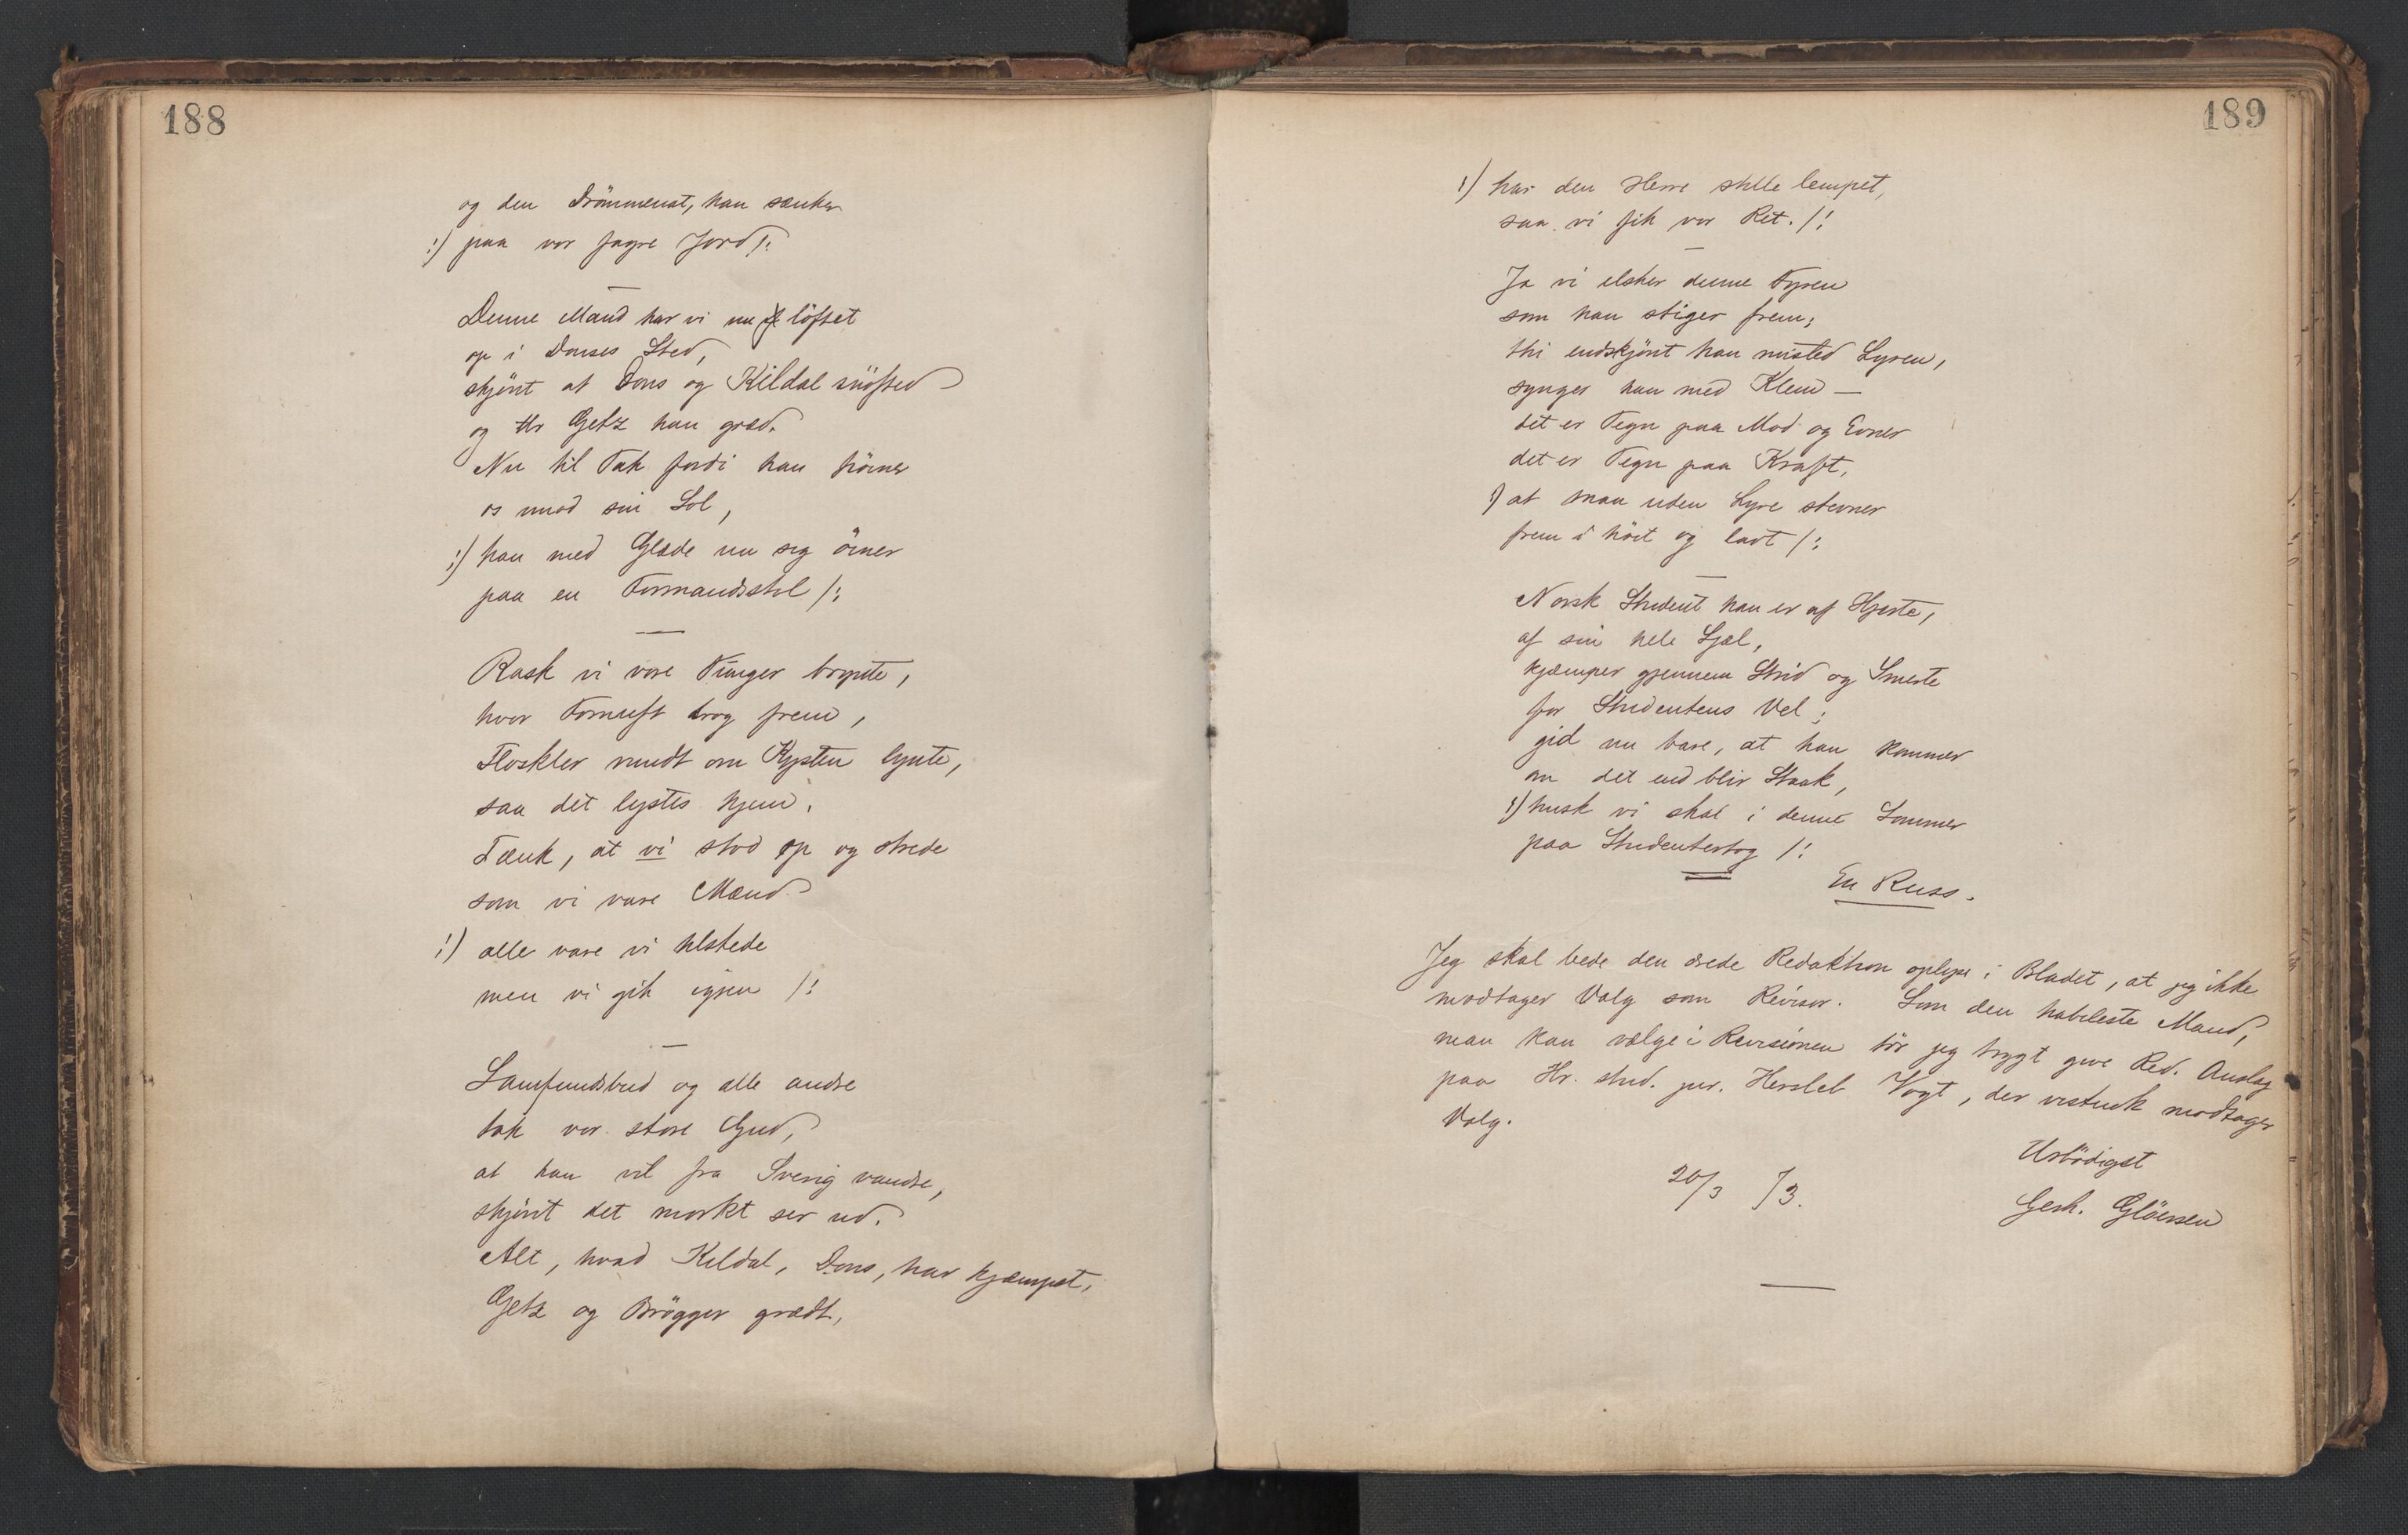 188
og den Drömmenat, han sænker
:/ paa vor fagre Jord /:
Denne Mand har vi nu löftet
op i Donses Sted,
skjönt at Dons og Kildal snöfted
og Hr Getz han græd.
Nu til Tak fordi han hörner
os mod sin Sol,
:/ han med Glæde nu sig örner
paa en Formandsstol /:
Rask vi vore Vinger brynte,
hvor Fornuft drog frem,
Floskler rundt om Kysten lynte,
saa det lystes hjem.
Tænk, at vi stod op og strede
som vi vare Mænd
:/ alle vare vi tilstede
men vi gik igjen /:
Samfundsbud og alle andre
tak vor store Gud,
at han vil fra Sverig vandre,
skjönt det morkt ser ud.
Alt, hvad Kildal, Dons, har kjæmpet,
Getz og Brögger grædt,
189
:/ har den Herre stille lempet,
saa vi fik vor Ret. /:
Ja vi elsker denne Fyren
som han stiger frem;
thi endskjönt han misted Lyren,
synger han med Klem —
det er Tegn paa Mod og Evner
det er Tegn paa Kraft,
:/ at man uden Lyre stevner
frem i höit og lavt /:
Norsk Student han er af Hjerte,
af sin hele Sjæl,
kjæmper gjennem Strid og Smerte
for Studentens Vel;
gid nu bare, at han kommer
om det end blir Staak,
:/ husk vi skal i denne Sommer
paa Studentertog /:
En Russ.
Jeg skal bede den ærede Redaktion oplyse i Bladet, at jeg ikke
modtager Valg som Revisor. Som den habileste Mand,
man kan vælge i Revisionen tör jeg trygt give Red. Anslag
paa Hr. stud. jur. Hersleb Vogt, der vistnok modtager
Valg.
20/3 73.
Ærbödigst
Gerh. Glöersen